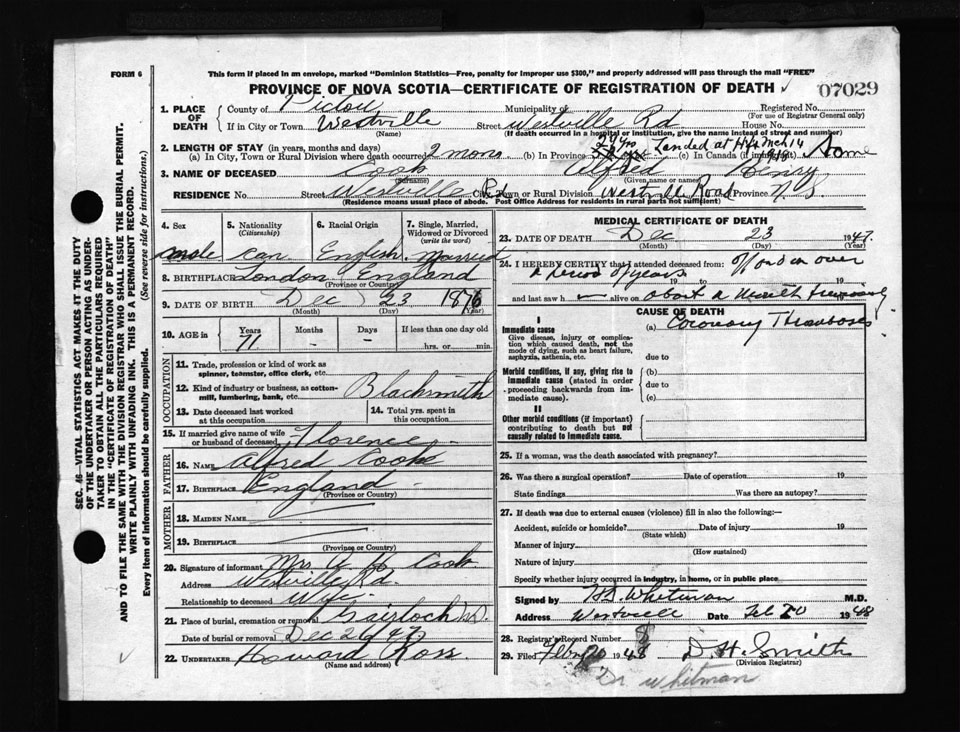 FORM 6
This form if placed in an envelope, marked "Dominion Statistics—Free, penalty for improper use $300," and properly addressed will pass through the mail "FREE"
PROVINCE OF NOVA SCOTIA—CERTIFICATE OF REGISTRATION OF DEATH
07029
1. PLACE OF DEATH
County of Pictou Municipality of Registered No.
(For use of Registrar General only)
If in City or Town Westville Street Westville Rd House No.
(Name) (If death occurred in a hospital or institution, give the name instead of street and number)
2. LENGTH OF STAY (in years, months and days)
(a) In City, Town or Rural Division where death occurred 2 mons (b) In Province Landed at Hfx Mch 14 (c) In Canada (if immigrant) Same
3. NAME OF DECEASED Cook Henry
(Surname) (Given name or names)
RESIDENCE No. Street Westville Rd City, Town or Rural Division Westville Road Province N.S.
(Residence means usual place of abode. Post Office Address for residents in rural parts not sufficient)
4. Sex male
5. Nationality (Citizenship) Can
6. Racial Origin English
7. Single, Married, Widowed or Divorced (write the word) Married
8. BIRTHPLACE London England
(Province or Country)
9. DATE OF BIRTH Dec 23 1876
(Month) (Day) (Year)
10. AGE in Years 71 Months - Days - If less than one day old
hrs. or min.
OCCUPATION
11. Trade, profession or kind of work as spinner, teamster, office clerk, etc.
12. Kind of industry or business, as cotton-mill, lumbering, bank, etc.
Blacksmith
13. Date deceased last worked at this occupation
14. Total yrs. spent in this occupation
15. If married give name of wife or husband of deceased Florence
FATHER
16. NAME Alfred Cook
17. BIRTHPLACE England
(Province or Country)
MOTHER
18. MAIDEN NAME
19. BIRTHPLACE
(Province or Country)
20. Signature of informant Mrs A H Cook
Address Westville Rd.
Relationship to deceased Wife
21. Place of burial, cremation or removal Gairloch N.S.
Date of burial or removal Dec 26 47
22. UNDERTAKER Howard Ross
(Name and address)
MEDICAL CERTIFICATE OF DEATH
23. DATE OF DEATH Dec 23 1947
(Month) (Day) (Year)
24. I HEREBY CERTIFY that I attended deceased from: over
a period of years 19 to 19
and last saw h alive on about a month previously
CAUSE OF DEATH
I
Immediate cause
Give disease, injury or complication which caused death, not the mode of dying, such as heart failure, asphyxia, asthenia, etc.
(a) Coronary Thrombosis
due to
Morbid conditions, if any, giving rise to immediate cause (stated in order proceeding backwards from immediate cause).
(b)
due to
(c)
II
Other morbid conditions (if important) contributing to death but not causally related to immediate cause.
25. If a woman, was the death associated with pregnancy?
26. Was there a surgical operation? Date of operation 19
State findings Was there an autopsy?
27. If death was due to external causes (violence) fill in also the following:—
Accident, suicide or homicide? Date of injury 19
(State which)
Manner of injury
(How sustained)
Nature of injury
Specify whether injury occurred in industry, in home, or in public place
Signed by Whitman M.D.
Address Westville Date Feb 20 1948
28. Registrar's Record Number 8
29. Filed Feby 20 1948 D. H. Smith
(Division Registrar)
Dr Whitman
SEC. 46—VITAL STATISTICS ACT MAKES IT THE DUTY
OF THE UNDERTAKER OR PERSON ACTING AS UNDER-
TAKER TO OBTAIN ALL THE PARTICULARS REQUIRED
IN THE "CERTIFICATE OF REGISTRATION OF DEATH"
AND TO FILE THE SAME WITH THE DIVISION REGISTRAR WHO SHALL ISSUE THE BURIAL PERMIT.
WRITE PLAINLY WITH UNFADING INK. THIS IS A PERMANENT RECORD.
Every item of information should be carefully supplied. (See reverse side for instructions.)